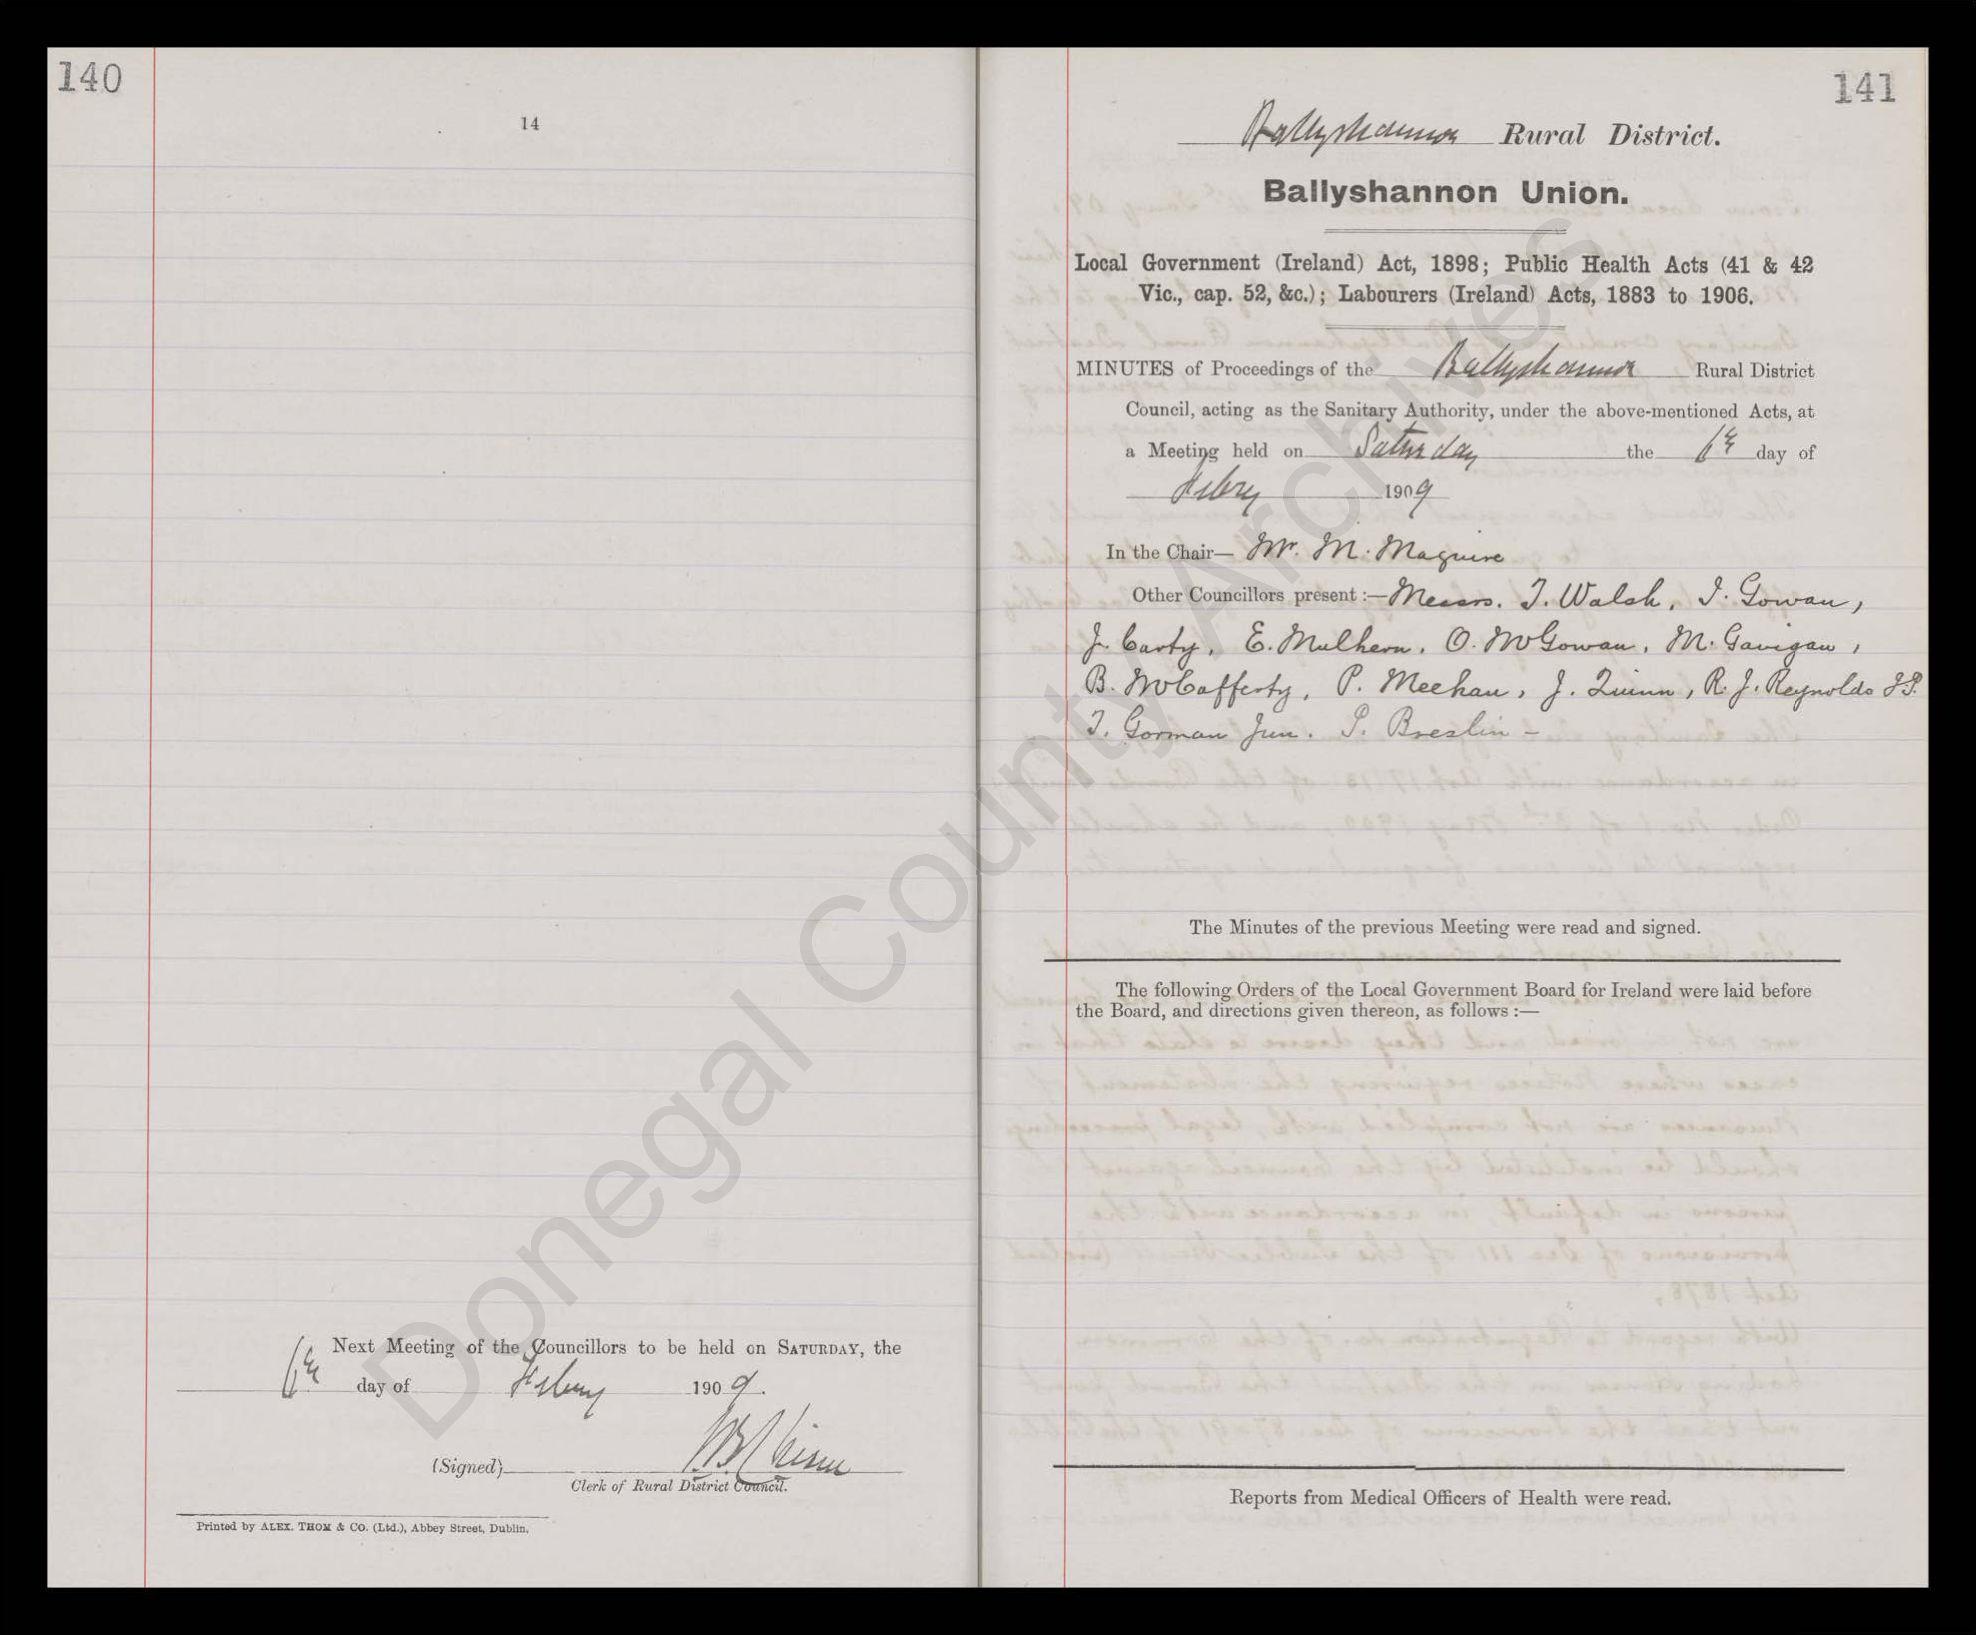 140
14
Next Meeting of the Councillors to be held on SATURDAY, the
6th day of Febry 1909.
(Signed)
Clerk of Rural District Council.
Printed by ALEX. THOM & CO. (Ltd.), Abbey Street, Dublin.
141
Ballyshannon Rural District.
Ballyshannon Union.
Local Government (Ireland) Act, 1898; Public Health Acts (41 & 42
Vic., cap. 52, &c.); Labourers (Ireland) Acts, 1883 to 1906.
MINUTES of Proceedings of the Ballyshannon Rural District
Council, acting as the Sanitary Authority, under the above-mentioned Acts, at
a Meeting held on Saturday the 6th day of
Febry 1909
In the Chair— Mr. M. Maguire
Other Councillors present :— Messrs. T. Walsh, J. Gowan,
J. Carty, E. Mulhern, O. McGowan, M. Gavigan,
B. McCafferty, P. Meehan, J. Quinn, R. J. Reynolds J.P.
T. Gorman Jun. P. Breslin -
The Minutes of the previous Meeting were read and signed.
The following Orders of the Local Government Board for Ireland were laid before
the Board, and directions given thereon, as follows :—
Reports from Medical Officers of Health were read.
Donegal County Archives